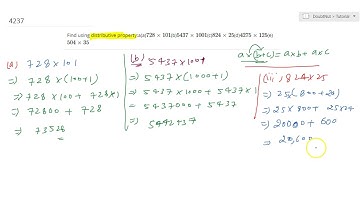 4237
Doubtnut • Tutorial
Find using distributive property:a)(728 × 101(c)5437 × 1001(c)824 × 25(d)4275 × 125(e)
504 × 35
(a) 728×101
⇒ 728×(100+1)
⇒ 728×100 + 728×1
⇒ 72800 + 728
⇒ 73528
(b) 5437×1001
⇒ 5437×(1000+1)
⇒ 5437×1000 + 5437×1
⇒ 5437000 + 5437
⇒ 5442437
a×(b+c)=a×b+a×c
(iii) 824×25
⇒ 25(800+24)
⇒ 25×800+ 25×24
⇒ 20000 + 600
⇒ 20,600